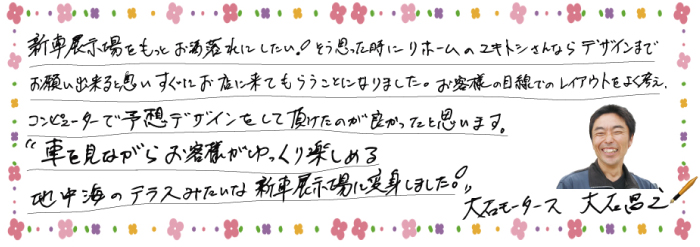 新車展示場をもっとお洒落れにしたい!そう思った時にリホームのユキトシさんならデザインまで
お願い出来ると思いすぐにお店に来てもらうことになりました。お客様の目線でのレイアウトをよく考え、
コンピューターで予想デザインをして頂けたのが良かったと思います。
“車を見ながらお客様がゆっくり楽しめる
地中海のテラスみたいな新車展示場に変身しました!”
大石モータース 大石昌之